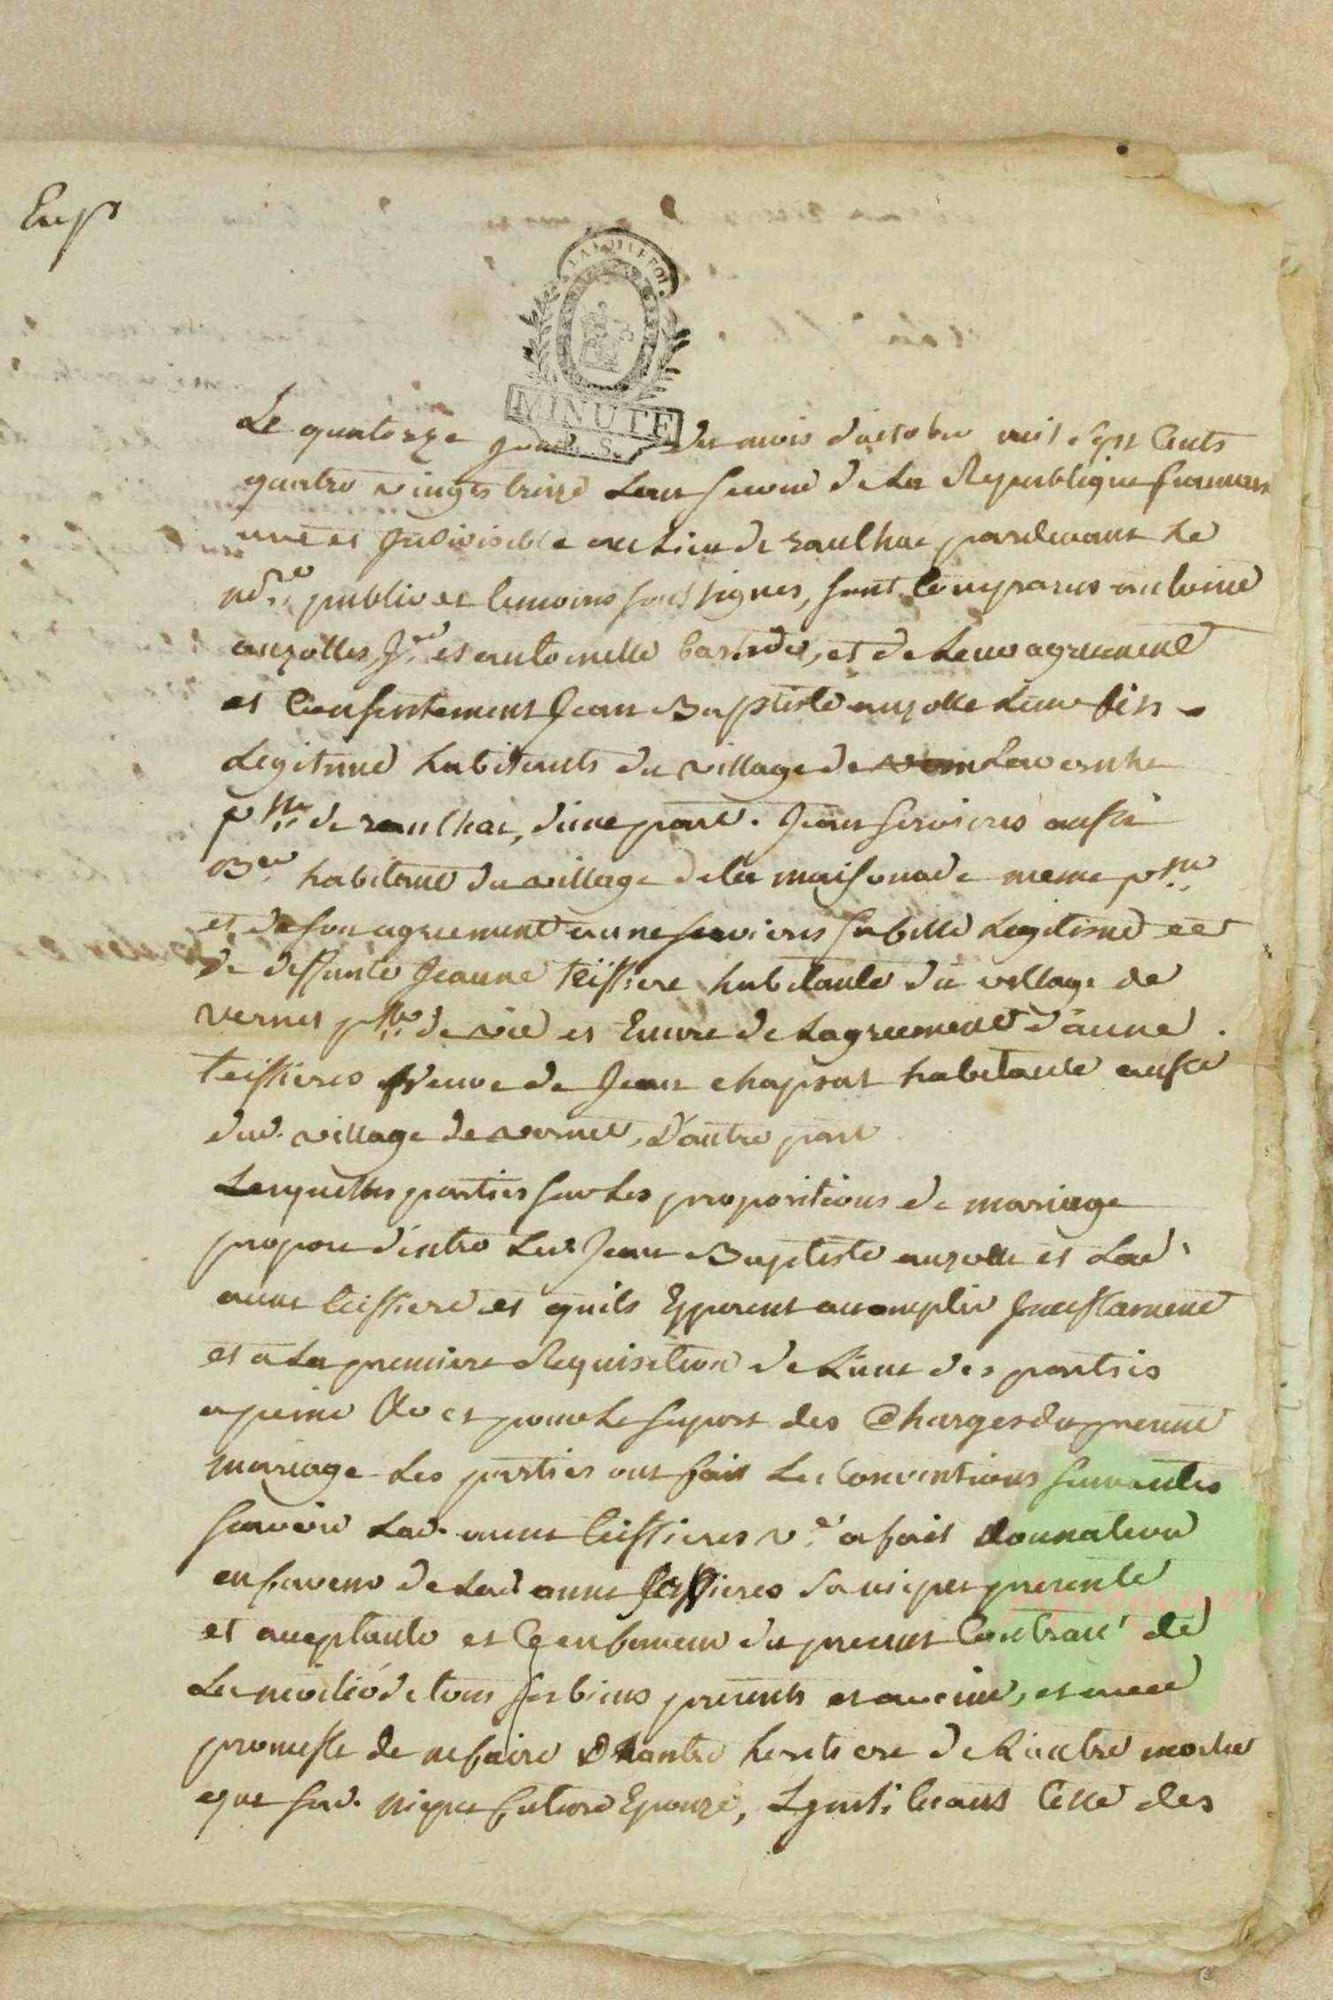 Exp
LA LOI LE ROI
MINUTE
S.
Le quatorze jour du mois d'octobre mil sept cents
quatre vingts treize Lan second de La Republique francaise
une et Indivisible au Lieu de raulhac pardevant Le
nore public et temoins soussignes, sont Comparus antoine
auzolles, et antoinette bastide, et de Leur agreement
et Consentement Jean Baptiste auzolle Leur fils
Legitime habitants du village de Lavernhe
psse de raulhac, d'une part. Jean servieres aussi
habitant du village de la maisonade meme psse
et de son agreement anne servieres sa fille Legitime et
de deffunte Jeanne teissiere habitante du village de
vernet psse de vic et Encore de Lagreement d'anne
teissieres veuve de Jean chaprat habitante aussi
dud. village de vernet, D'autre part
Lesquelles parties sur Les propositions de mariage
propose d'entre Led Jean Baptiste auzolle et Lad
anne teissiere et quils accomplir
et a La premiere Requisition de L'une des parties
a peine et pour Le suport des Charges du present
mariage Les parties ont fait Les Conventions suivantes
scavoir Lad. anne teissieres ve a fait donnation
en faveur de Lad anne sa niepce presente
et aceptante et Ce en faveur du present Contrat de
La moitié de tous ses biens presents et avenir, et avec
promesse de ne faire D'autre heretiere de L'autre moitie
que sad. niepce future Epouze, Celle des